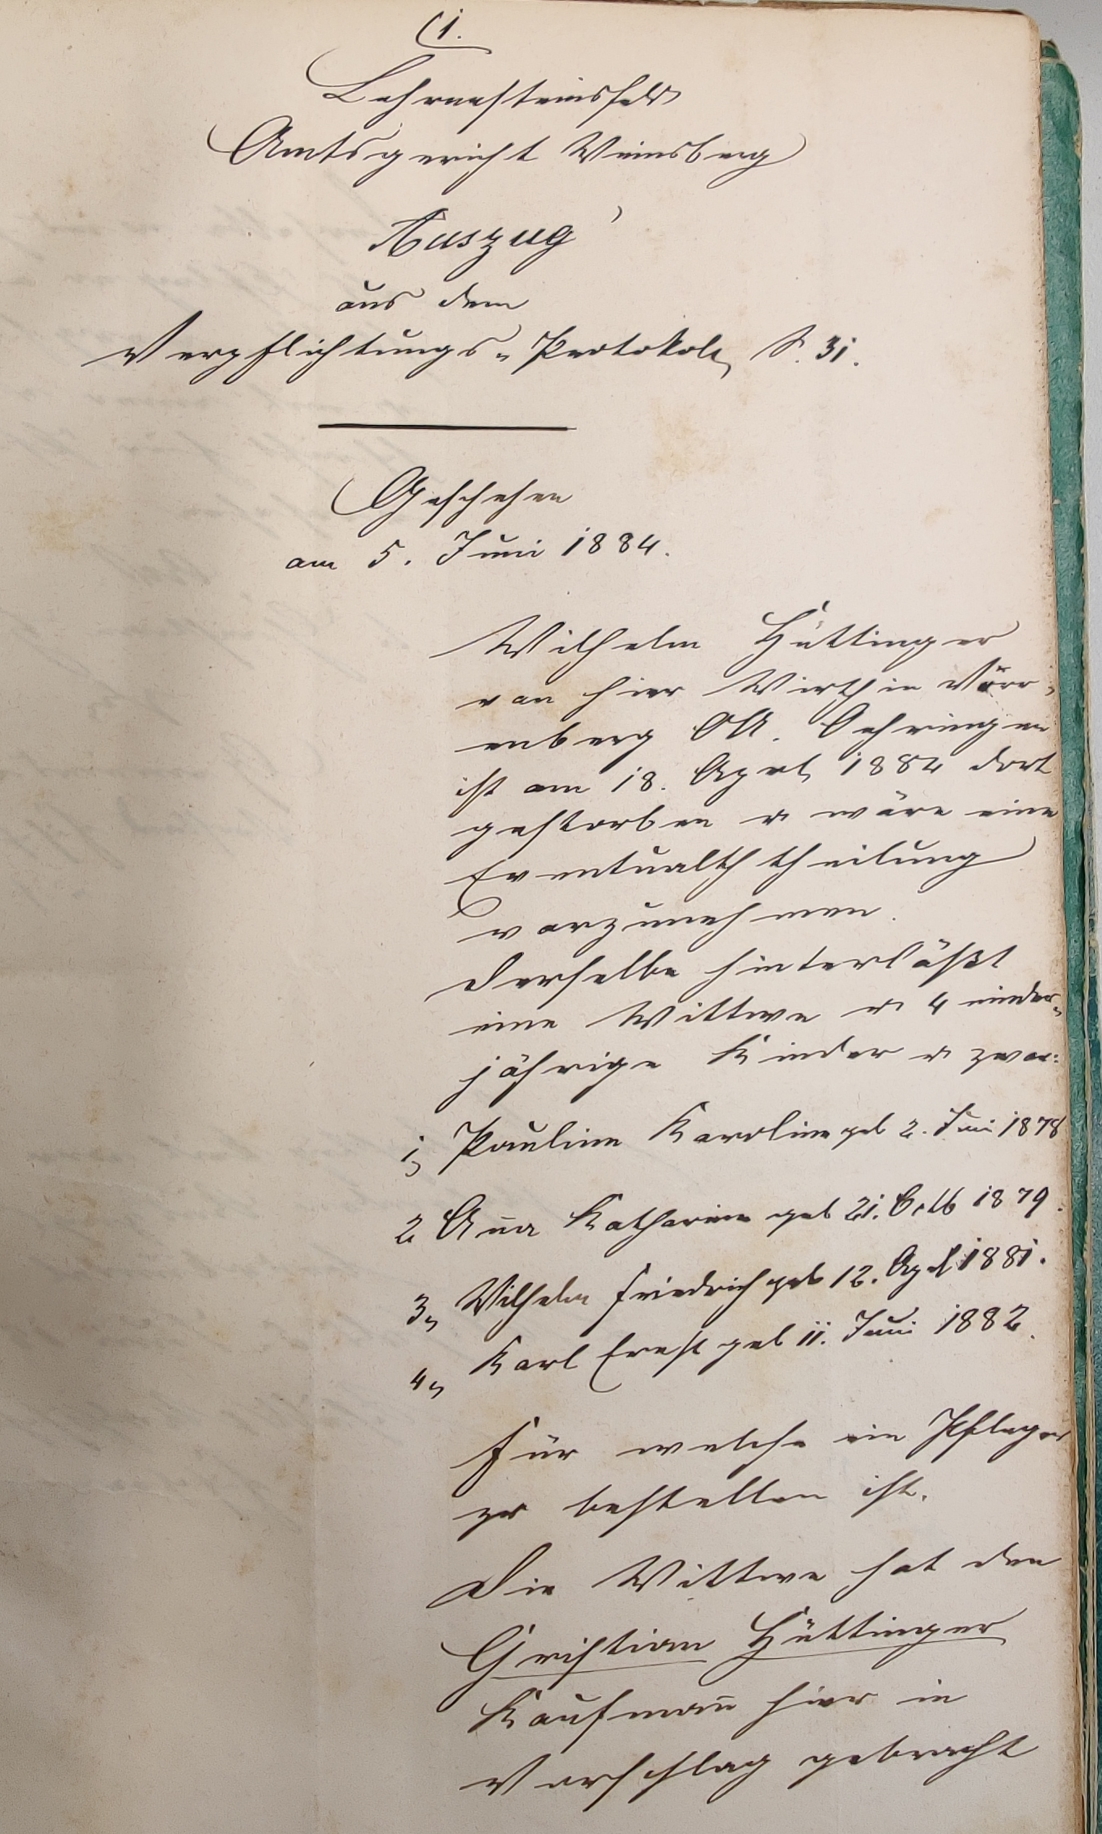 (1.
Lehrensteinsfeld
Amtsgericht Weinsberg
Auszug
aus dem
Verpflichtungs-Protokoll, S. 31.
Geschehen
am 5. Juni 1884.
Wilhelm Hüttinger
von hier Wirth in Vörr-
enberg OA. Oehringen
ist am 18. April 1884 dort
gestorben u wäre eine
Eventualth theilung
vorzunehmen.
Derselbe hinterläßt
eine Wittwe u 4 minder-
jährige Kinder u zwar:
1, Pauline Karoline geb 2. Juni 1878
2 Anna Katharine geb 21. Octb 1879.
3, Wilhelm Friedrich geb 12. April 1881.
4, Karl Ernst geb 11. Juni 1882.
Für welche ein Pfleger
zu bestellen ist.
Die Wittwe hat den
Christian Hüttinger
Kaufmann hier in
Vorschlag gebracht